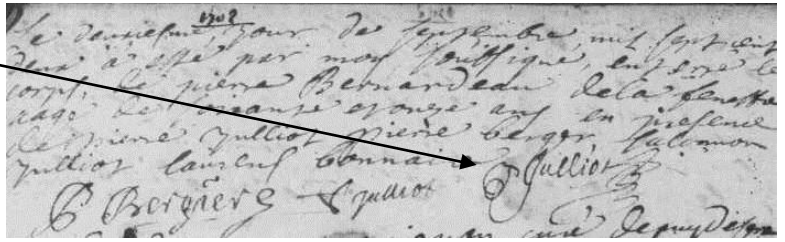 1702
Le douziesme jour de septembre mil sept cent
deux à esté par moy soussigné, enterré le
corps de pierre Bernardeau dela fenestre
aagé de soixante et onze ans en presence
de pierre Julliot pierre berger Salomon
Julliot laurens bonnai
P Bergier S Julliot P Julliot
curé depuydesere